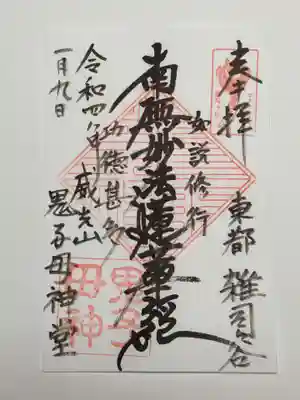 奉拝
東都 雑司ケ谷
如説修行
南無妙法蓮華経
功徳甚多
威光山
鬼子母神堂
令和四年
一月九日
鬼子
母神